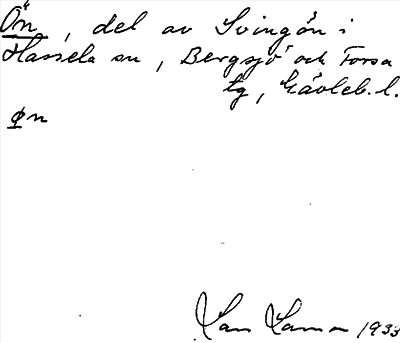 Ön, del av Svingån i
Hassela sn, Bergsjö och Forsa
tg, Gävleb. l.
ɸn
1933